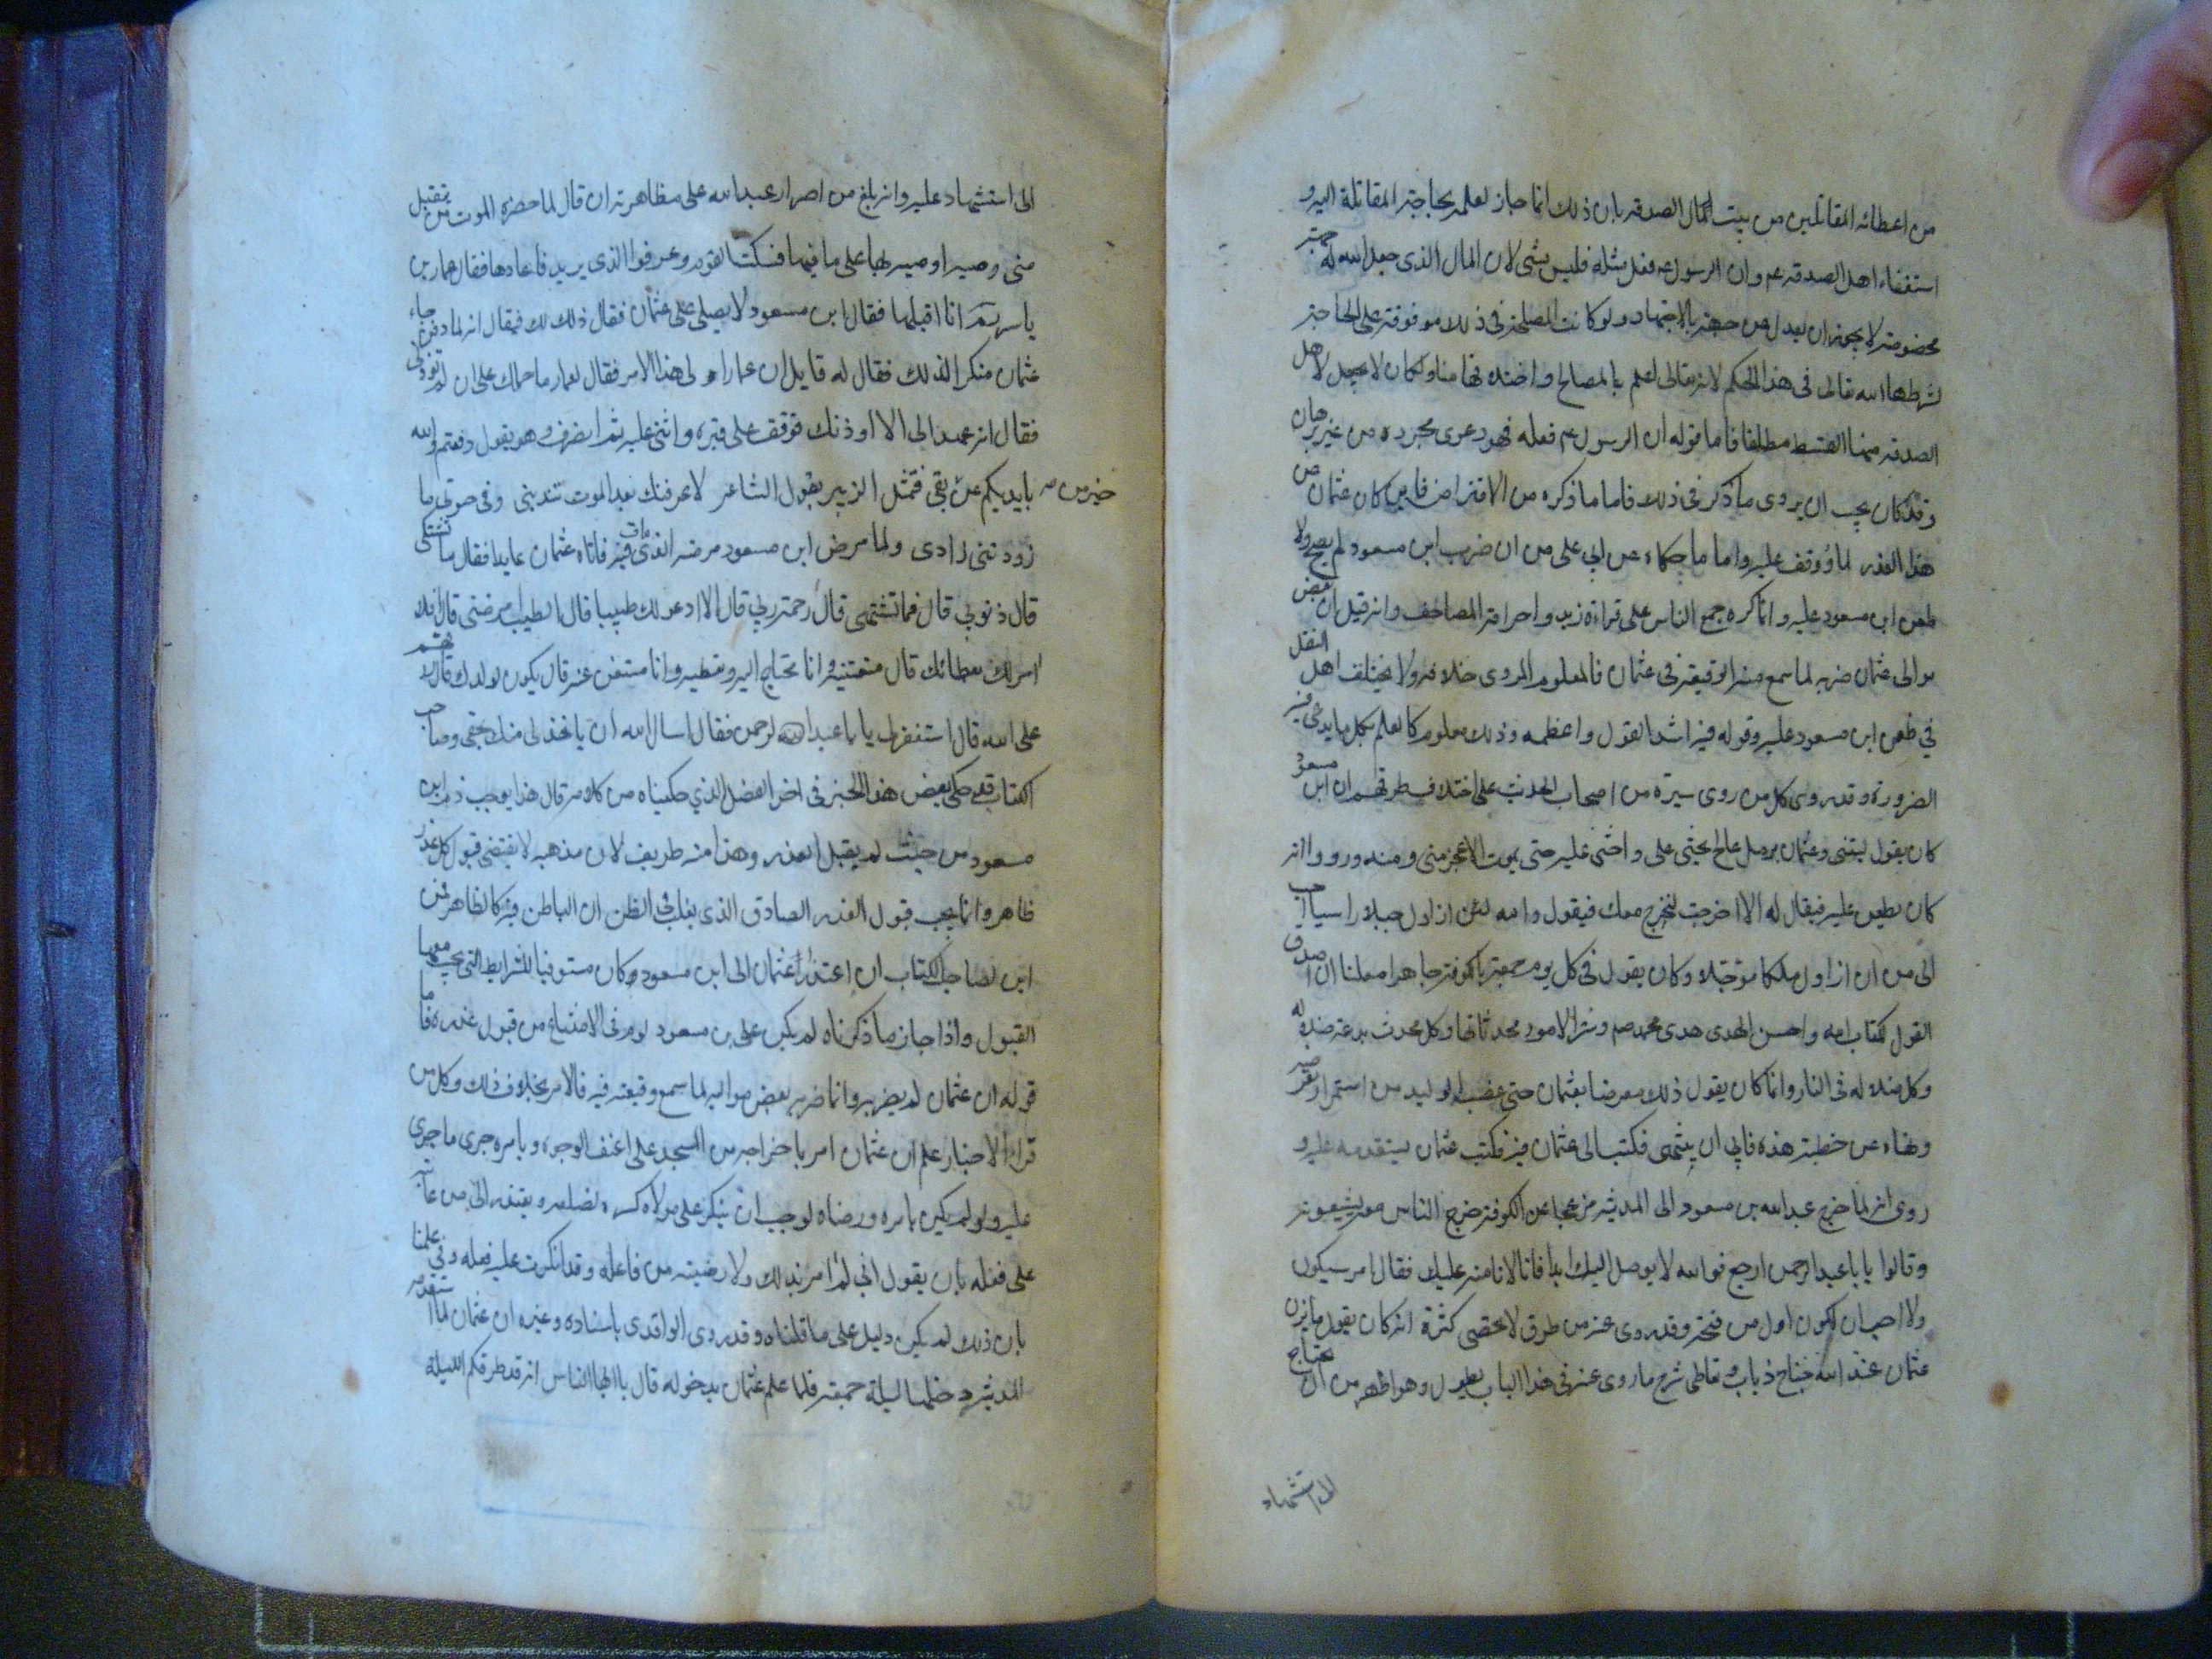 من اعطائه المقاتلين من بيت المال الصدقة بان ذلك انما جاز لعلمه بحاجة المقاتلة اليه و
استغناء اهل الصدقة عنه وان الرسول ص فعل مثله فليس بشئ لان المال الذي جعل الله له جهة
مخصوصة لا يجوز ان يعدل عن جهته بالاجتهاد ولو كانت المصلحة في ذلك موقوفة على الحاجة
لشرطها الله تعالى في هذا الحكم لانه تعالى اعلم بالمصالح واختلافها منا ولكان لا يجعل لاهل
الصدقة منها القسط مطلقا فاما قوله ان الرسول ص فعله فهو دعوى مجردة من غير برهان
وقد كان يجب ان يروى ما ذكر في ذلك فاما ما ذكره من الاقتراض فاين كان عثمان عن
هذا العذر لما ووقف عليه واما ما حكاه عن ابي علي من ان ضرب ابن مسعود لم يصح ولا
طعن ابن مسعود عليه وانما كره جمع الناس على قراءة زيد واحراقه المصاحف وانه قيل ان بعض
موالى عثمان ضربه لما سمع منه الوقيعة في عثمان فالمعلوم المروى خلافه ولا يختلف اهل النقل
في طعن ابن مسعود عليه وقوله فيه اشد القول واعظمه وذلك معلوم كالعلم بكل ما يدعى فيه
الضرورة وقد روى كل من روى سيرة من اصحاب الحديث على اختلاف طرقهم ان ابن مسعود
كان يقول ليتني وعثمان برمل عالج يحثى على واحثى عليه حتى يموت الاعجز مني ومنه ورووا انه
كان يطعن عليه فيقال له الا خرجت لنخرج معك فيقول والله لئن ازاول جبلا راسيا احب
الى من ان ازاول ملكا مؤجلا وكان يقول في كل يوم جمعة بالكوفة جاهرا معلنا ان اصدق
القول كتاب الله واحسن الهدى هدى محمد ص وشر الامور محدثاتها وكل محدث بدعة ضلاله
وكل ضلاله في النار وانما كان يقول ذلك معرضا بعثمان حتى غضب الوليد من استمرار تعريضه
ونهاه عن خطبته هذه فابى ان ينتهى فكتب الى عثمان فيه فكتب عثمان يستقدمه عليه و
روى انه لما خرج عبد الله بن مسعود الى المدينة مزعجا عن الكوفة خرج الناس معه يشيعونه
وقالوا يا با عبد الرحمن ارجع فوالله لا يوصل اليك ابدا فانا لا نامنه عليك فقال امر سيكون
ولا احب ان اكون اول من فتحه وقد روى عنه من طرق لا تحصى كثرة انه كان يقول ما يزن
عثمان عند الله جناح ذباب وتعاطى شرح ما روى عنه في هذا الباب يطول وهو اظهر من ان يحتاج
الى استشهاد
الى استشهاد عليه وانه بلغ من اصرار عبد الله على مظاهرته ان قال لما حضره الموت من يتقبل
منى وصية اوصيه بها على ما فيها فسكت القوم وعرفوا الذي يريد فاعادها فقال عمار بن
ياسر رحمه انا اقبلها فقال ابن مسعود لا يصلى على عثمان فقال ذلك لك فيقال انه لما دفن جاء
عثمان منكرا لذلك فقال له قايل ان عمارا ولى هذا الامر فقال لعمار ما حملك على ان لم تؤذنى
فقال انه عهد الى الا اوذنك فوقف على قبره واثنى عليه ثم انصرف وهو يقول رفعتم والله
بايديكم عن خير من بقى فتمثل الزبير بقول الشاعر لا عرفنك بعد الموت تندبنى وفى حيوتى ما
زودتنى زادى ولما مرض ابن مسعود مرضه الذى مات فيه فاتاه عثمان عايدا فقال ما تشتكى
قال ذنوبى قال فما تشتهى قال رحمة ربى قال الا ادعو لك طبيبا قال الطبيب امرضنى قال افلا
امر لك بعطائك قال منعتنيه وانا محتاج اليه وتعطينيه وانا مستغن عنه قال يكون لولدك قال رزقهم
على الله قال استغفر لى يا ابا عبد الرحمن فقال اسال الله ان ياخذ لى منك بحقى وصاحب
الكتاب قد حكى بعض هذا الخبر فى اخر الفصل الذي حكيناه من كلامه قال هذا يوجب ذم ابن
مسعود من حيث لم يقبل العذر وهذا منه طريف لان مذهبه لا يقتضى قبول كل عذر
ظاهر وانما يجب قبول العذر الصادق الذى يغلب فى الظن ان الباطن فيه كالظاهر فمن
اين لصاحب الكتاب ان اعتذار عثمان الى ابن مسعود كان مستوفيا للشرايط التى يجب معها
القبول واذا جاز ما ذكرناه لم يكن على بن مسعود لوم فى الامتناع من قبول عذره فاما
قوله ان عثمان لم يضربه وانما ضربه بعض مواليه لما سمع وقيعته فيه فالامر بخلاف ذلك وكل من
قراء الاخبار علم ان عثمان امر باخراجه من المسجد على اعنف الوجوه وبامره جرى ما جرى
عليه ولو لم يكن بامره ورضاه لوجب ان ينكر على مولاه كسره لضلعه ويعتذر الى من عاتبه
على فعله بان يقول انى لم امر بذلك ولا رضيته من فاعله وقد انكرت عليه فعله وفى علمنا
بان ذلك لم يكن دليل على ما قلناه وقد روى الواقدى باسناده وغيره ان عثمان لما استقدمه
المدينة دخلها ليلة جمعة فلما علم عثمان بدخوله قال يا ايها الناس انه قد طرقكم الليلة